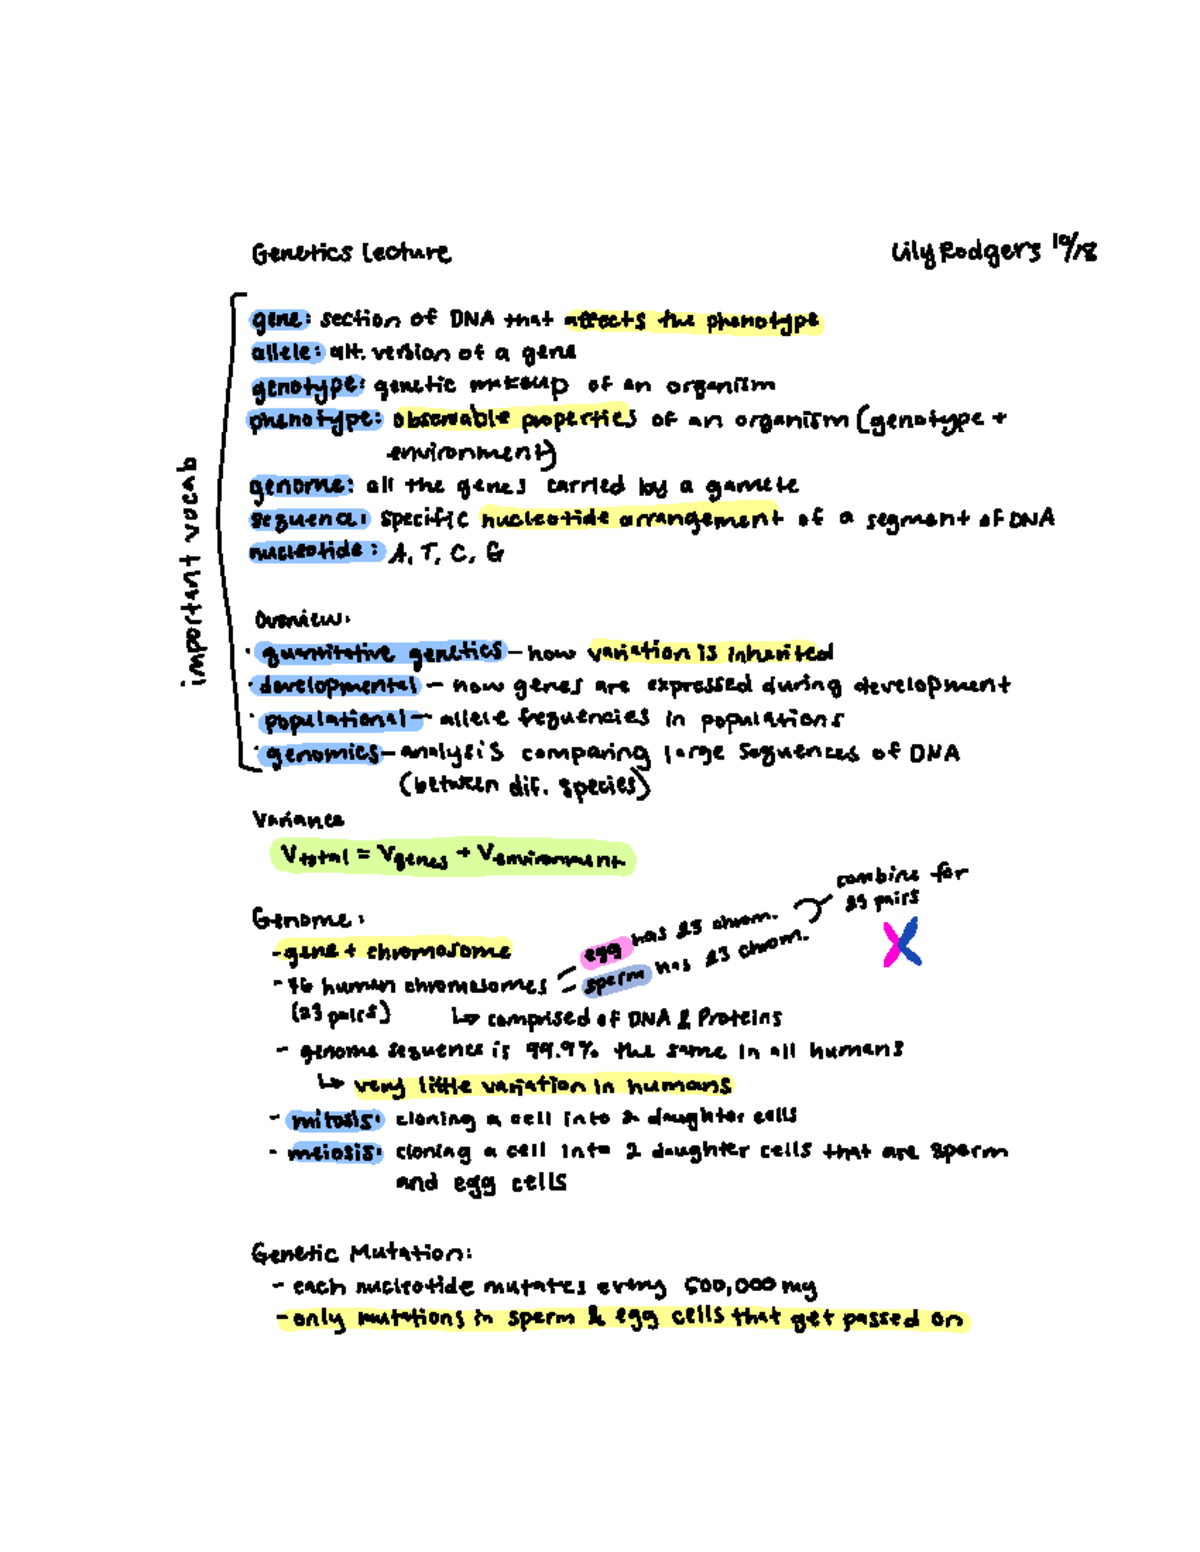 Genetics Lecture
Lily Rodgers 10/18
important vocab
gene: section of DNA that affects the phenotype
allele: alt. version of a gene
genotype: genetic makeup of an organism
phenotype: observable properties of an organism (genotype +
environment)
genome: all the genes carried by a gamete
sequence: specific nucleotide arrangement of a segment of DNA
nucleotide: A, T, C, G
Overview:
· quantitative genetics – how variation is inherited
· developmental – how genes are expressed during development
· populational – allele frequencies in populations
· genomics – analysis comparing large sequences of DNA
(between dif. species)
Variance
Vtotal = Vgenes + Venvironment
Genome:
- gene + chromosome
- 46 human chromosomes
(23 pairs)
egg has 23 chrom.
sperm has 23 chrom.
combine for
23 pairs
↳ comprised of DNA & Proteins
- genome sequence is 99.9% the same in all humans
↳ very little variation in humans
- mitosis: cloning a cell into 2 daughter cells
- meiosis: cloning a cell into 2 daughter cells that are sperm
and egg cells
Genetic Mutation:
- each nucleotide mutates every 500,000 my
- only mutations in sperm & egg cells that get passed on